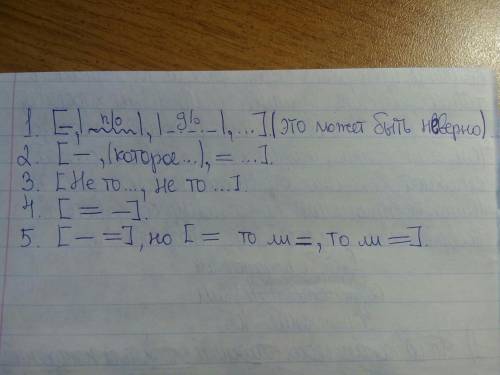 1. [–,|п/о|,|д/о|,...].(это может быть неверно)
2. [–,(которое...),= ...].
3. [Не то..., не то...].
4. [= –].
5. [– =], но [= то ли =, то ли =].